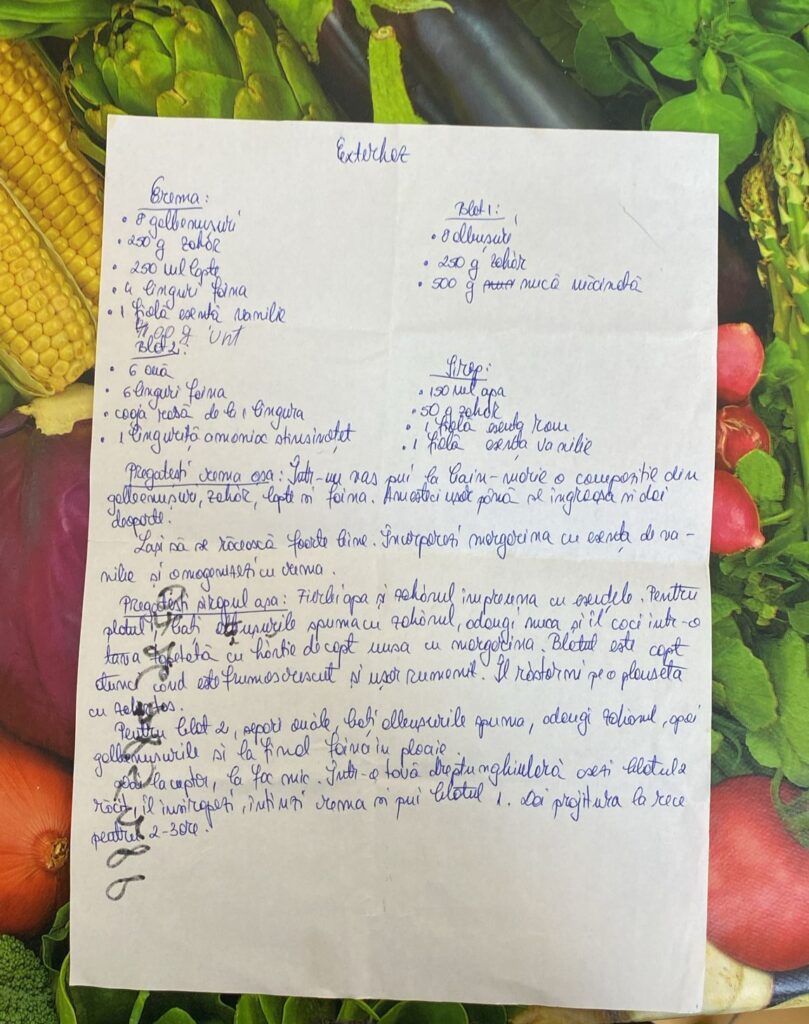 Exterhaz
Crema:
• 8 galbenușuri
• 250 g zahăr
• 250 ml lapte
• 4 linguri faina
• 1 fiolă esență vanilie
g unt
Blat 1:
• 8 albușuri
• 250 g zahăr
• 500 g nucă măcinată
Blat 2:
• 6 ouă
• 6 linguri faina
• coajă rasă de la 1 lingura
• 1 linguriță amoniac stins in oțet
Sirop:
• 150 ml apa
• 50 g zahăr
• 1 fiolă esență rom
• 1 fiolă esența vanilie
Pregatesti crema asa: Într-un vas pui la bain-marie o compoziție din
galbenușuri, zahăr, lapte si faina. Amesteci ușor până se ingroașa si dai
deoparte.
Lași să se răcească foarte bine. Încorporezi margarina cu esența de va-
nilie și omogenizezi cu crema.
Pregatesti siropul așa: Fierbi apa și zahărul impreuna cu esențele. Pentru
blatul 1, bati albușurile spuma cu zahărul, adaugi nuca și îl coci intr-o
tava tapetată cu hârtie de copt unsa cu margarina. Blatul este copt
atunci când este frumos crescut și ușor rumenit. Îl răstorni pe o planseta
cu zahăr tos.
Pentru blat 2, separi ouăle, bați albușurile spuma, adaugi zahărul, apoi
galbenușurile si la final faina în ploaie.
la cuptor, la foc mic. Într-o tavă dreptunghiulară asezi blatul 2
răcit, îl insiropezi, intinzi crema si pui blatul 1. Dai prajitura la rece
pentru 2-3 ore.